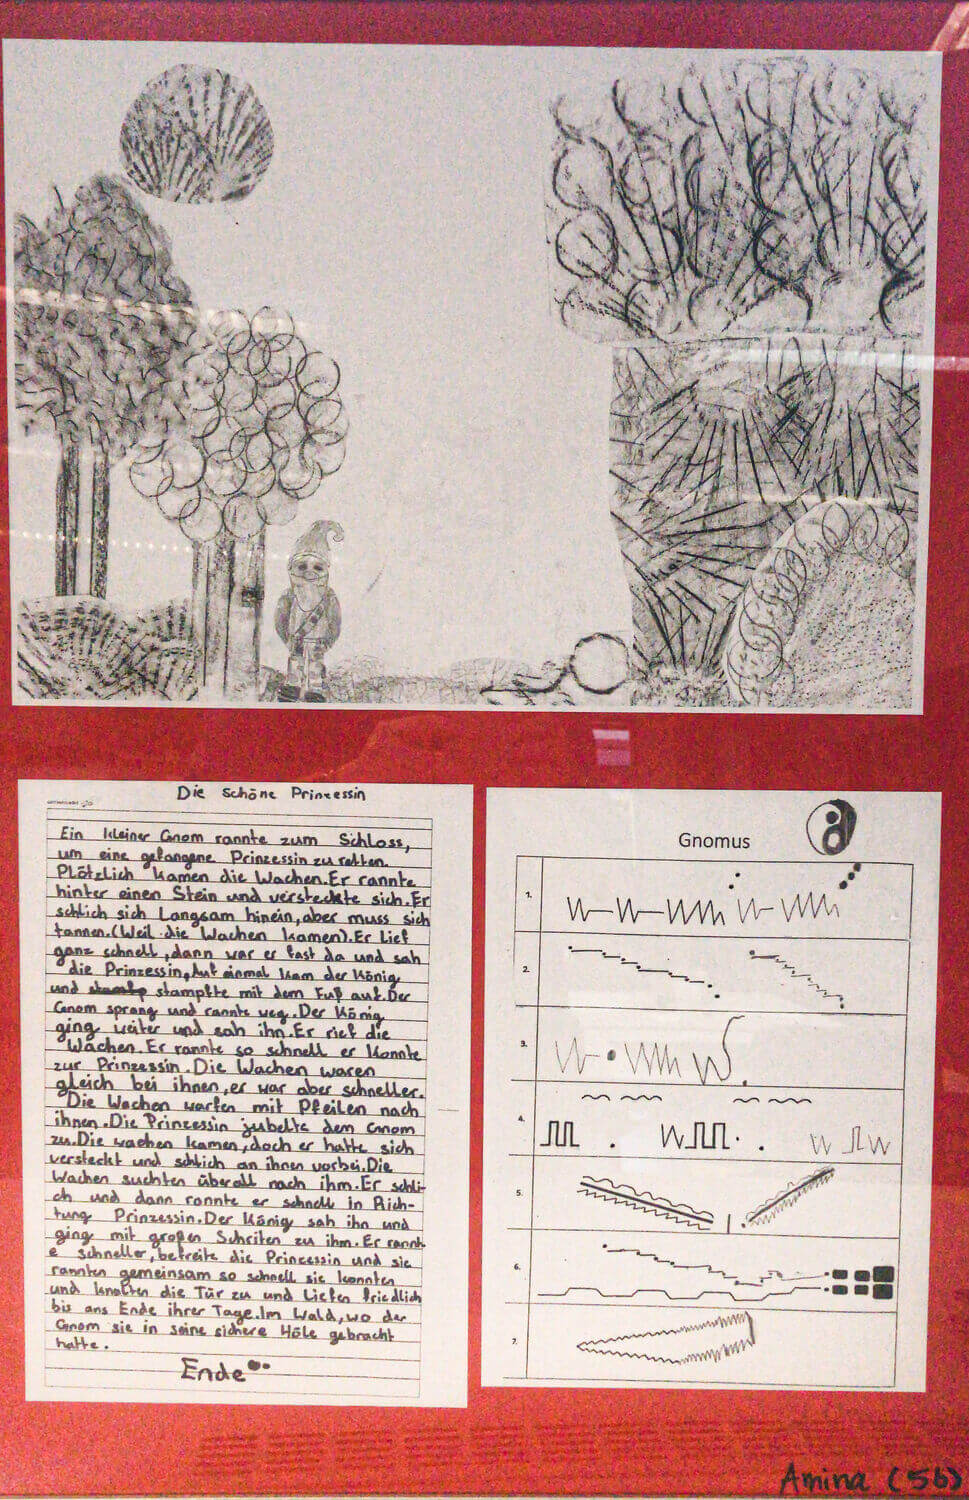 Die Schöne Prinzessin
Ein kleiner Gnom rannte zum Schloss,
um eine gefangene Prinzessin zu retten.
Plötzlich kamen die Wachen. Er rannte
hinter einen Stein und versteckte sich. Er
schlich sich Langsam hinein, aber muss sich
tannen. (Weil die Wachen kamen). Er Lief
ganz schnell, dann war er fast da und sah
die Prinzessin, Auf einmal kam der König
und stampfte mit dem Fuß auf. Der
Gnom sprang und rannte weg. Der König
ging weiter und sah ihn. Er rief die
Wachen. Er rannte so schnell er konnte
zur Prinzessin. Die Wachen waren
gleich bei ihnen, er war aber schneller.
Die Wachen warfen mit Pfeilen nach
ihnen. Die Prinzessin jubelte dem Gnom
zu. Die wachen kamen, doch er hatte sich
versteckt und schlich an ihnen vorbei. Die
Wachen suchten überall nach ihm. Er schli-
ch und dann rannte er schnell in Rich-
tung Prinzessin. Der König sah ihn und
ging mit großen Schriten zu ihm. Er rannt-
e schneller, befreite die Prinzessin und sie
rannten gemeinsam so schnell sie konnten
und knalten die Tür zu und Liefen friedlich
bis ans Ende ihrer Tage. Im Wald, wo der
Gnom sie in seine sichere Höle gebracht
hatte.
Ende
Gnomus
1.
2.
3.
4.
5.
6.
7.
Amina (5b)